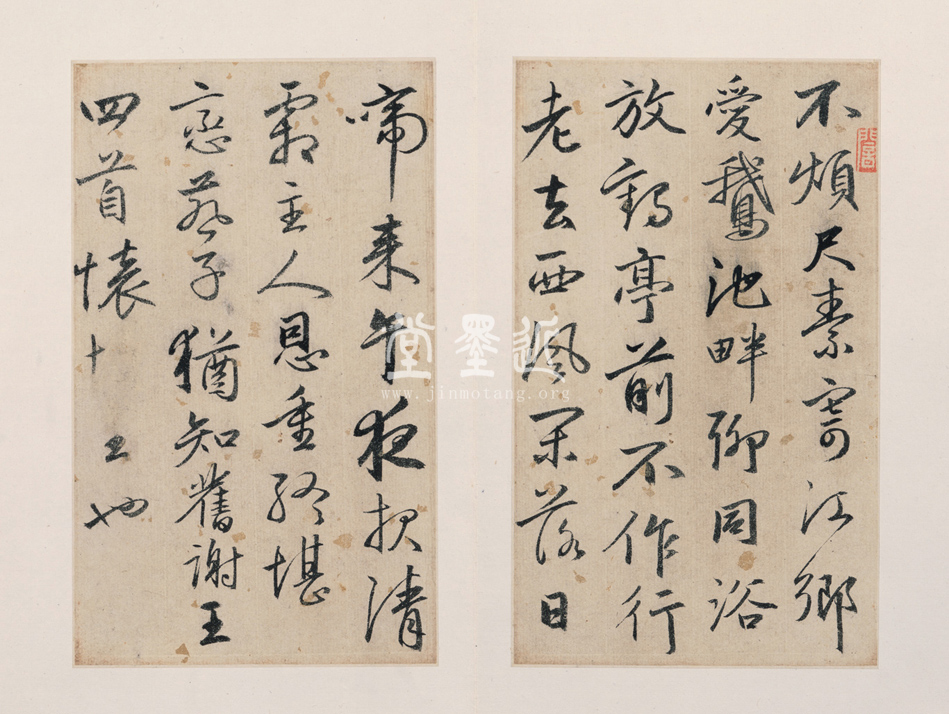 不煩尺素寄江鄉
愛鵝池畔聊同浴
放鶴亭前不作行
老去西風閑落日
啼來午夜報清
霜主人恩重終堪
戀燕子猶知舊謝王
四首懷十二弟也
近墨堂
www.jinmotang.org